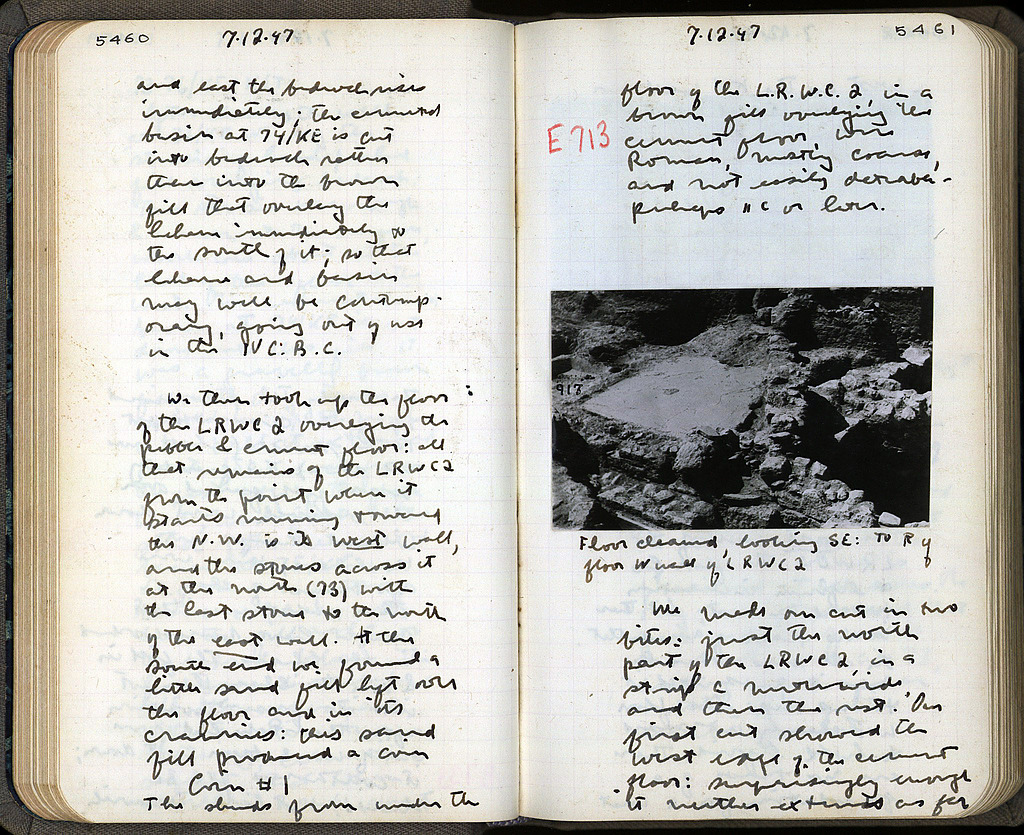 5460
7·12·47
and east the bedrock rises
immediately; the cemented
basin at 74/KE is cut
into bedrock rather
than into the brown
fill that overlay the
immediately to
the south of it; so that
and basin
may well be contemp-
orary, going out of use
in the IV C. B.C.
We then took up the floor
of the LRWC2 overlying the
pebble & cement floor: all
that remains of the LRWC2
from the point where it
starts running toward
the N.W. is its west wall,
and the stones across it
at the north (73) with
the last stone to the north
of the east wall. At the
south end we found a
little sand fill left over
the floor and in its
crannies: this sand
fill produced a coin
Coin #1
The sherds from under the
7·12·47
5461
floor of the L.R.W.C. 2, in a
brown fill overlying the
E 713
cement floor, were
Roman, mostly coarse,
and not easily datable -
perhaps II C or later.
917
Floor cleaned, looking SE: To R of
floor W wall of LRWC2
We made our cut in two
bites: just the north
part of the LRWC2, in a
strip c. meter wide,
and then the rest. Our
first cut showed the
west edge of the cement
floor: surprisingly enough
it neither extends as far